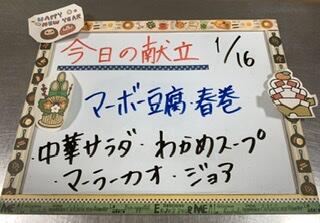 HAPPY NEW YEAR
今日の献立 1/16
マーボー豆腐・春巻
・中華サラダ・わかめスープ
・マーラーカオ・ジョア